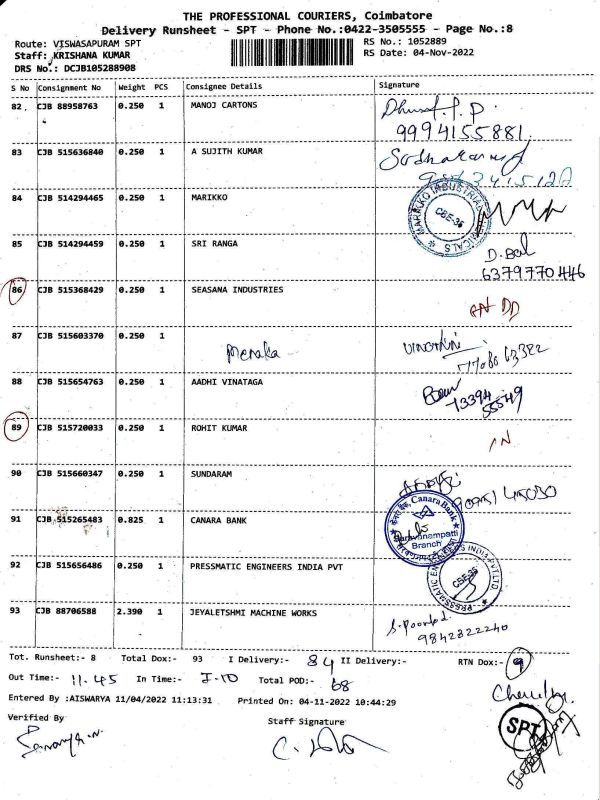 THE PROFESSIONAL COURIERS, Coimbatore
Delivery Runsheet - SPT - Phone No.:0422-3505555 - Page No.:8
Route: VISWASAPURAM SPT RS No.: 1052889
Staff: KRISHANA KUMAR RS Date: 04-Nov-2022
DRS No.: DCJB105288908
S No Consignment No Weight PCS Consignee Details Signature
82 CJB 88958763 0.250 1 MANOJ CARTONS
9994155881
83 CJB 515636840 0.250 1 A SUJITH KUMAR
84 CJB 514294465 0.250 1 MARIKKO
MARIKKO INDUSTRIAL
CBE-35
85 CJB 514294459 0.250 1 SRI RANGA
D. Bal
6379770446
86 CJB 515368429 0.250 1 SEASANA INDUSTRIES
DD
87 CJB 515603370 0.250 1
Menaka
77086 63322
88 CJB 515654763 0.250 1 AADHI VINATAGA
73394
55549
89 CJB 515720033 0.250 1 ROHIT KUMAR
IN
90 CJB 515660347 0.250 1 SUNDARAM
91 CJB 515265483 0.825 1 CANARA BANK
केनरा बैंक, Canara Bank
Saravanampatti
Branch
92 CJB 515656486 0.250 1 PRESSMATIC ENGINEERS INDIA PVT
PRESSMATIC ENGINEERS INDIA PVT.LTD
CBE-35
93 CJB 88706588 2.390 1 JEYALETSHMI MACHINE WORKS
9842822240
Tot. Runsheet:- 8 Total Dox:- 93 I Delivery:- 84 II Delivery:- RTN Dox:- 9
Out Time:- 11.45 In Time:- 5-10 Total POD:- 68
Entered By :AISWARYA 11/04/2022 11:13:31 Printed On: 04-11-2022 10:44:29
Verified By Staff Signature
SPT